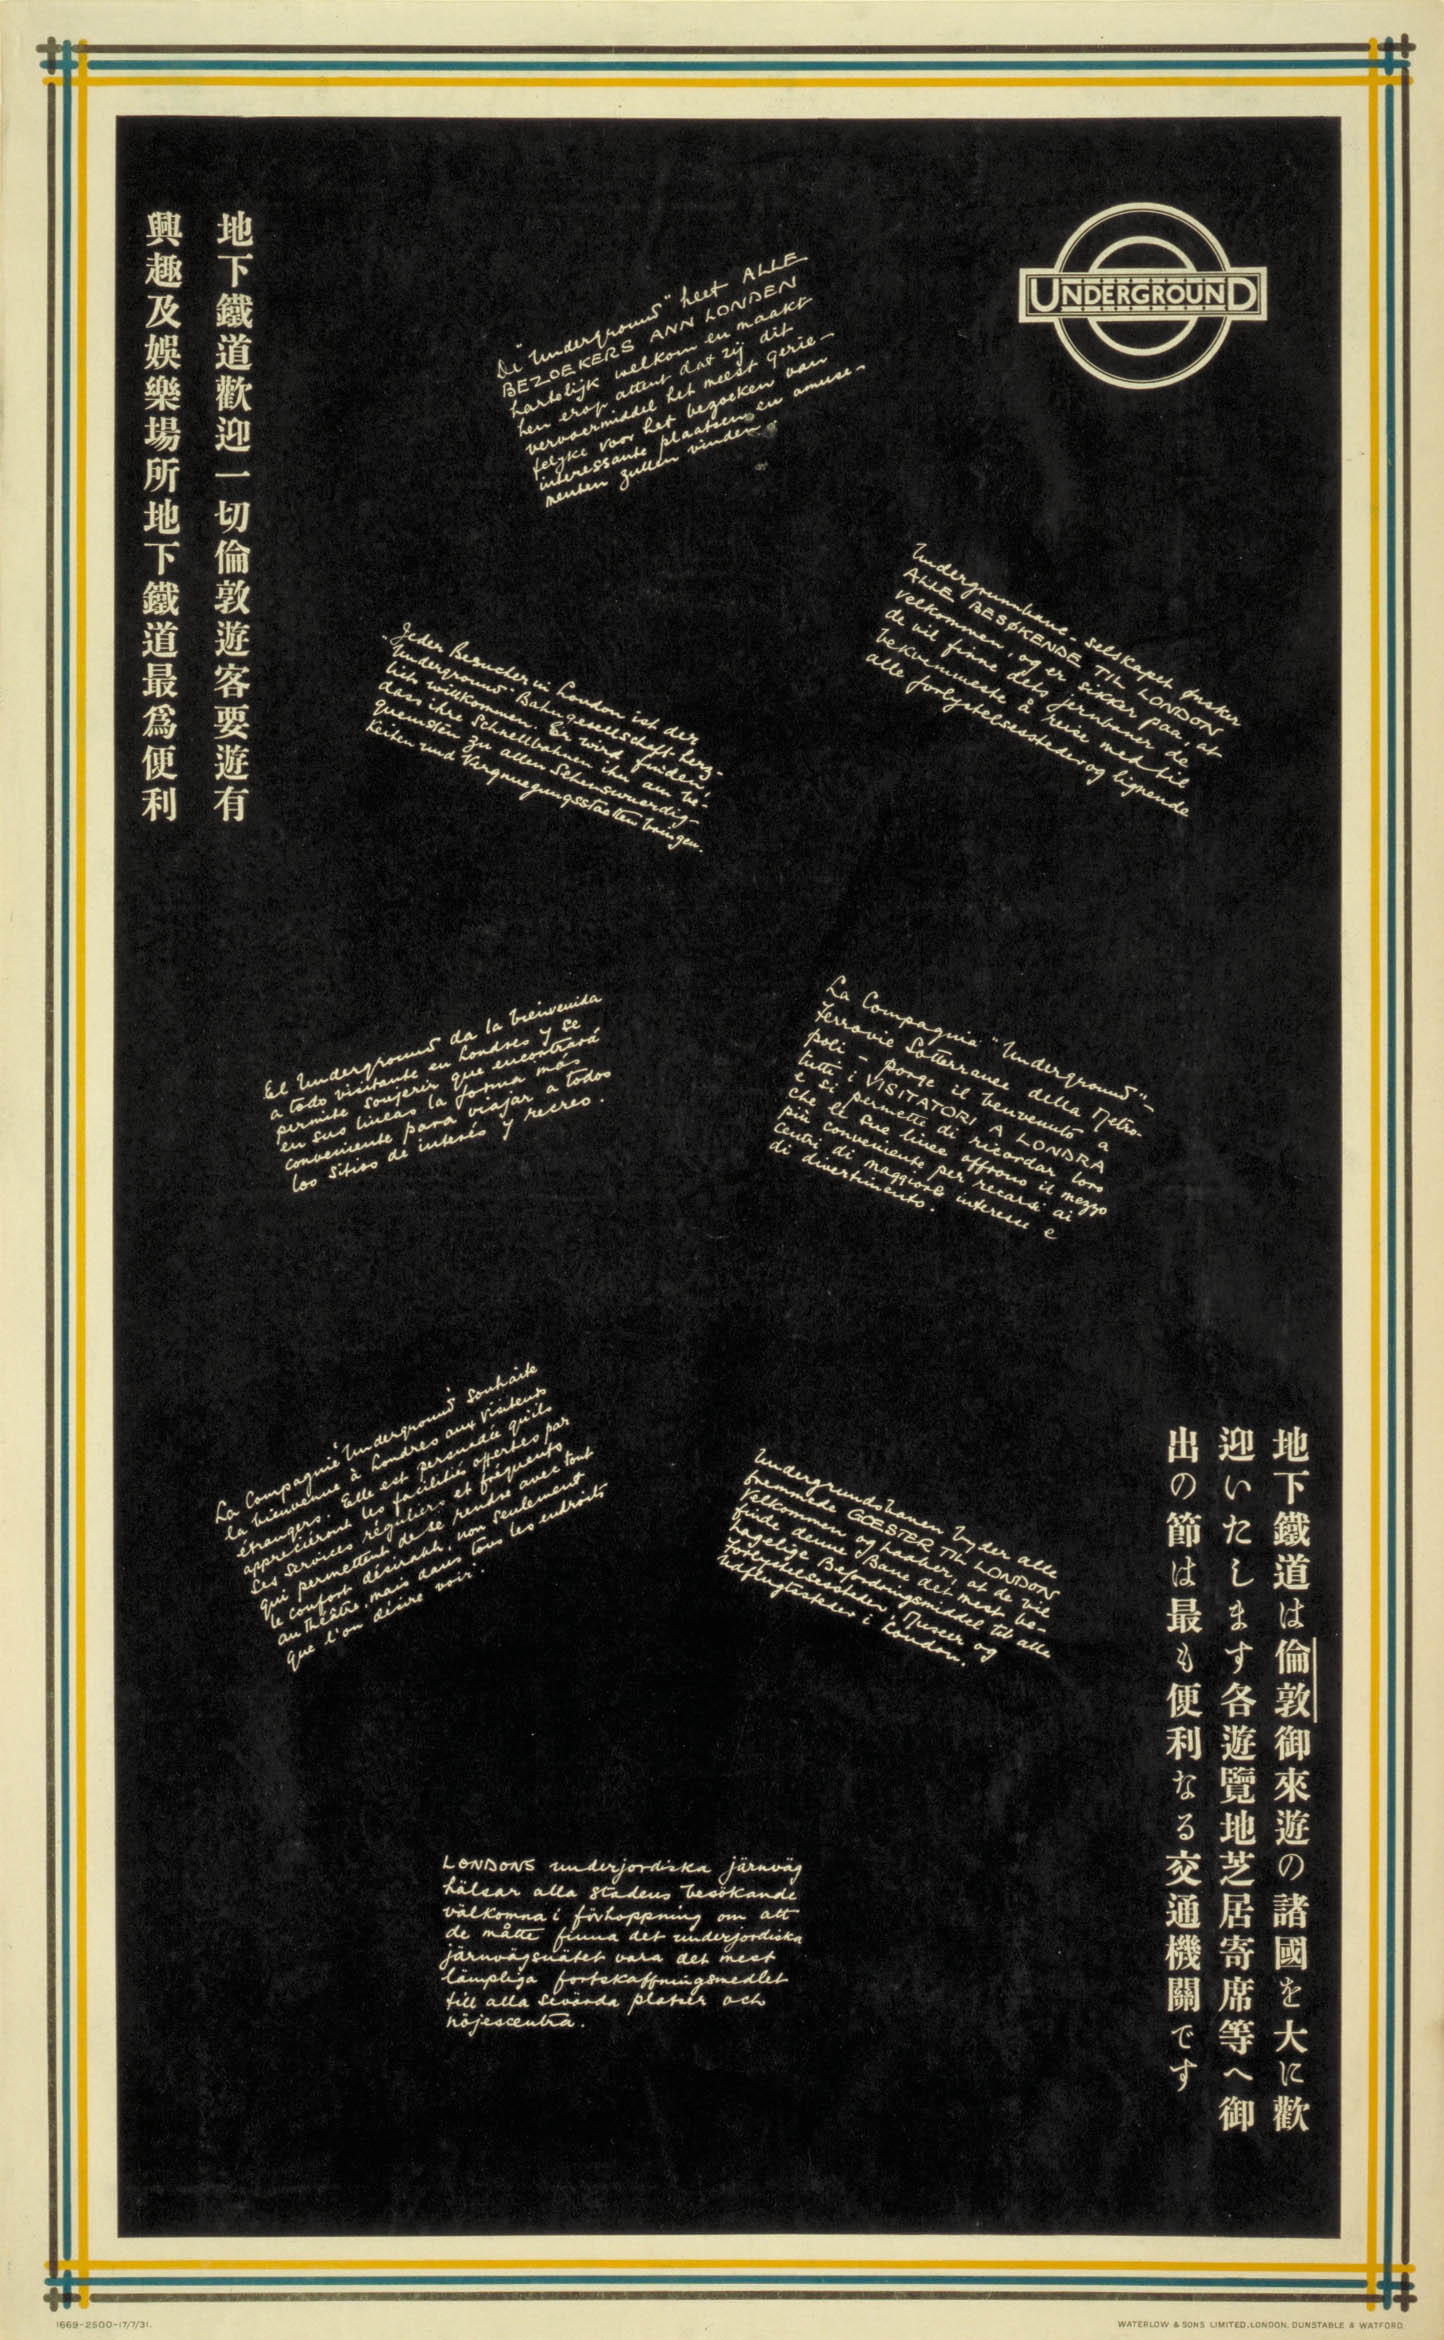 UNDERGROUND
地下鐵道歡迎一切倫敦遊客要遊有
興趣及娛樂場所地下鐵道最爲便利
De "Underground" heet ALLE
BEZOEKERS ANN LONDEN
hartolijk welkom en maakt
hen erop attent dat zij dit
vervoermiddel het meest gerie-
felyke voor het bezoeken van
interessante plaatsen en amuse-
menten zullen vinden.
Undergrunnbane-selskapet ønsker
ALLE BESØKENDE TIL LONDON
velkommen, og er sikker paa, at
de vil finne dets jernbaner de
bekvemmeste å reise med til
alle forlystelsessteder og lignende
"Jeder Besucher in London ist der
Underground-Bahngesellschaft herz-
lich willkommen. Er wird finden,
dass ihre Schnellbahnen ihn am be-
quemsten zu allen Sehenswuerdig-
keiten und Vergnuegungsstaetten bringen.
El Underground da la bienvenida
a todo visitante en Londres y se
permite sugerir que encontrará
en sus lineas la forma más
conveniente para viajar a todos
los sitios de interés y recreo.
La Compagnia "Underground"-
Ferrovie Sotterranee della Metro-
poli - porge il benvenuto a
tutti i VISITATORI A LONDRA
e si permette di ricordar loro
che le sue linee offrono il mezzo
più conveniente per recarsi ai
centri di maggiore interesse e
di divertimento.
La Compagnie "Underground" souhaite
la bienvenue à Londres aux visiteurs
étrangers. Elle est persuadée qu'ils
apprécieront les facilités offertes par
ses services réguliers et fréquents
qui permettent de se rendre avec tout
le confort désirable, non seulement
au théâtre, mais dans tous les endroits
que l'on désire voir.
Undergrundsbanen byder alle
fremmede GOESTER TIL LONDON
Velkommen og haaber, at de vil
finde denne Bane det mest be-
hagelige Befordringsmiddel til alle
Forlystelsessteder, Museer og
Udflugtssteder i London.
地下鐵道は倫敦御來遊の諸國を大に歡
迎いたします各遊覽地芝居寄席等へ御
出の節は最も便利なる交通機關です
LONDONS underjordiska järnväg
hälsar alla stadens besökande
välkomna i förhoppning om att
de måtte finna det underjordiska
järnvägsnätet vara det mest
lämpliga fortskaffningsmedlet
till alla sevärda platser och
nöjescentra.
1669-2500-17/7/31.
WATERLOW & SONS LIMITED, LONDON, DUNSTABLE & WATFORD.